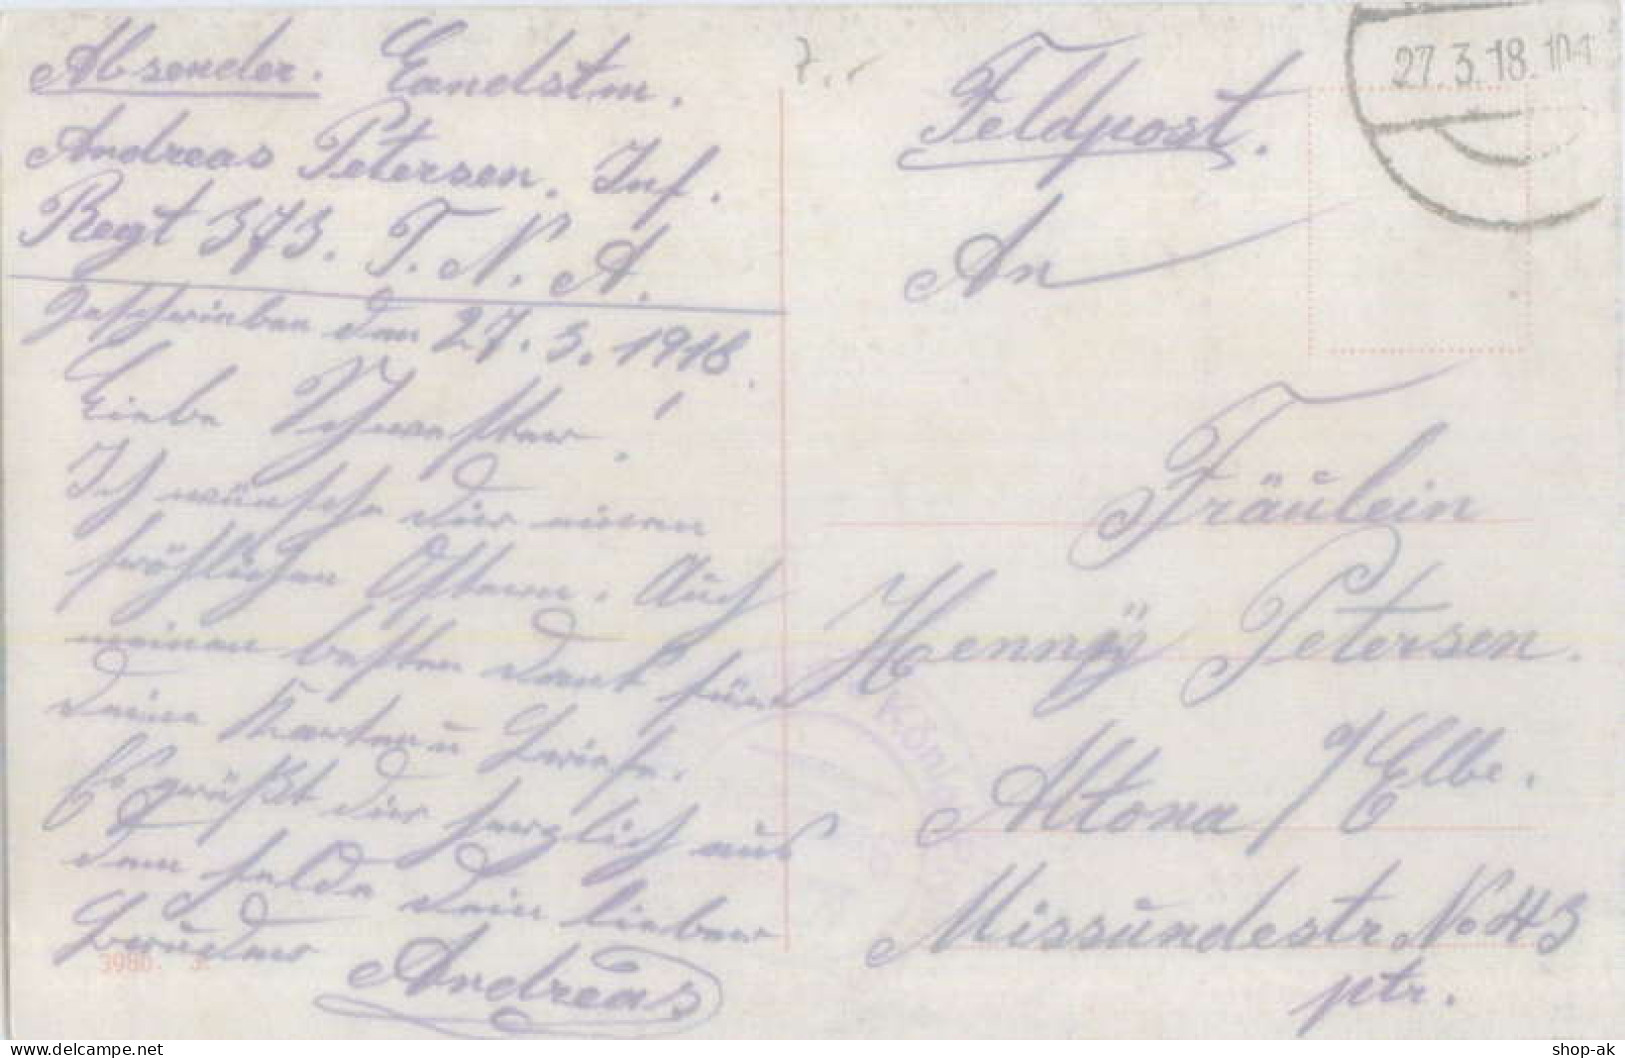 Absender. Landstm.
Andreas Petersen. Inf.
Regt 373. T. N. A.
geschrieben den 27. 3. 1918.
Liebe Schwester!
Ich wünsche dir einen
fröhlichen Ostern. Auch
meinen besten Dank für
deine Karten u Briefe.
Es grüßt dir herzlich aus
dem Felde dein lieber
Bruder
Andreas
3980.
7.-
27.3.18.
Feldpost.
An
Fräulein
Henny Petersen.
Altona / Elbe.
Missundestr. No 43
ptr.
König
shop-ak